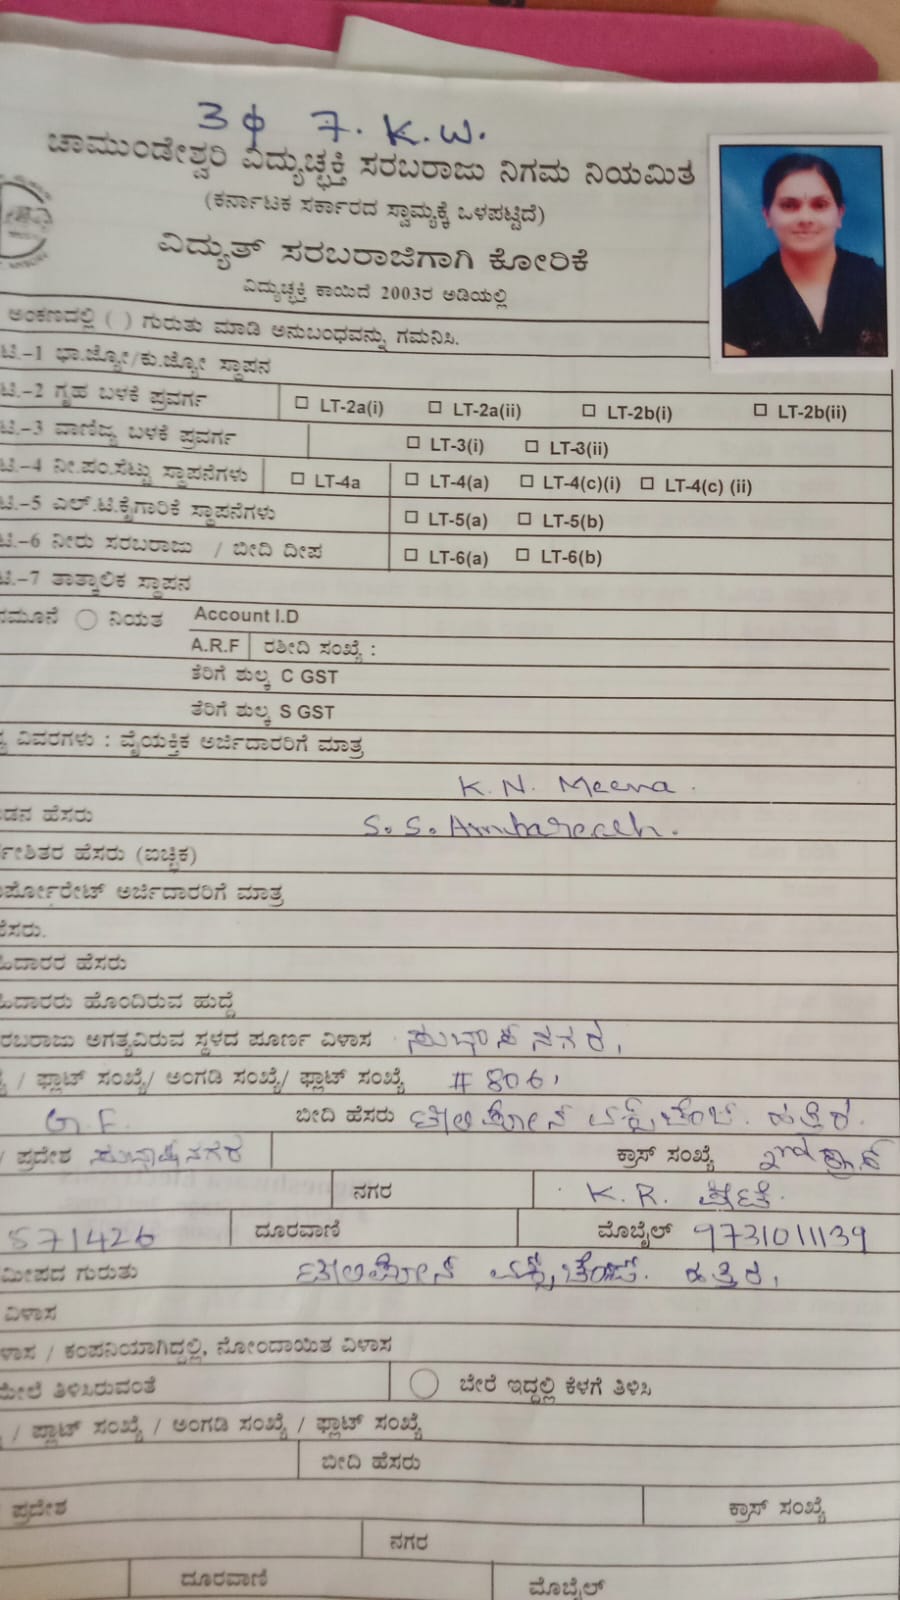 3 ϕ 7. K.W.
ಚಾಮುಂಡೇಶ್ವರಿ ವಿದ್ಯುಚ್ಛಕ್ತಿ ಸರಬರಾಜು ನಿಗಮ ನಿಯಮಿತ
(ಕರ್ನಾಟಕ ಸರ್ಕಾರದ ಸ್ವಾಮ್ಯಕ್ಕೆ ಒಳಪಟ್ಟಿದೆ)
ವಿದ್ಯುತ್ ಸರಬರಾಜಿಗಾಗಿ ಕೋರಿಕೆ
ವಿದ್ಯುಚ್ಛಕ್ತಿ ಕಾಯಿದೆ 2003ರ ಅಡಿಯಲ್ಲಿ
ಅಂಕಣದಲ್ಲಿ ( ) ಗುರುತು ಮಾಡಿ ಅನುಬಂಧವನ್ನು ಗಮನಿಸಿ.
ಟಿ.-1 ಭಾ.ಜ್ಯೋ/ಕು.ಜ್ಯೋ ಸ್ಥಾಪನ
ಟಿ.-2 ಗೃಹ ಬಳಕೆ ಪ್ರವರ್ಗ LT-2a(i) LT-2a(ii) LT-2b(i) LT-2b(ii)
ಟಿ.-3 ವಾಣಿಜ್ಯ ಬಳಕೆ ಪ್ರವರ್ಗ LT-3(i) LT-3(ii)
ಟಿ.-4 ನೀ.ಪಂ.ಸೆಟ್ಟು ಸ್ಥಾಪನೆಗಳು LT-4a LT-4(a) LT-4(c)(i) LT-4(c) (ii)
ಟಿ.-5 ಎಲ್.ಟಿ.ಕೈಗಾರಿಕೆ ಸ್ಥಾಪನೆಗಳು LT-5(a) LT-5(b)
ಟಿ.-6 ನೀರು ಸರಬರಾಜು / ಬೀದಿ ದೀಪ LT-6(a) LT-6(b)
ಟಿ.-7 ತಾತ್ಕಾಲಿಕ ಸ್ಥಾಪನ
ನಮೂನೆ ನಿಯತ Account I.D
A.R.F ರಶೀದಿ ಸಂಖ್ಯೆ :
ತೆರಿಗೆ ಶುಲ್ಕ C GST
ತೆರಿಗೆ ಶುಲ್ಕ S GST
ವಿವರಗಳು : ವೈಯಕ್ತಿಕ ಅರ್ಜಿದಾರರಿಗೆ ಮಾತ್ರ
K. N. Meena.
ಹೆಸರು S. S. Ambareesh.
ಹೆಸರು (ಐಚ್ಛಿಕ)
ಅರ್ಜಿದಾರರಿಗೆ ಮಾತ್ರ
ಹೆಸರು.
ಹೆಸರು
ಹೊಂದಿರುವ ಹುದ್ದೆ
ಅಗತ್ಯವಿರುವ ಸ್ಥಳದ ಪೂರ್ಣ ವಿಳಾಸ ಸುಭಾಷ್ ನಗರ,
/ ಫ್ಲಾಟ್ ಸಂಖ್ಯೆ/ ಅಂಗಡಿ ಸಂಖ್ಯೆ/ ಫ್ಲಾಟ್ ಸಂಖ್ಯೆ # 806,
G.F. ಬೀದಿ ಹೆಸರು ಟೆಲಿಫೋನ್ ಎಕ್ಸ್‌ಚೇಂಜ್. ಹತ್ತಿರ.
/ ಪ್ರದೇಶ ಸುಭಾಷ್ ನಗರ ಕ್ರಾಸ್ ಸಂಖ್ಯೆ 2nd ಕ್ರಾಸ್
ನಗರ K. R. ಪೇಟೆ.
571426 ದೂರವಾಣಿ ಮೊಬೈಲ್ 9731011139
ಗುರುತು ಟೆಲಿಫೋನ್ ಎಕ್ಸ್‌ಚೇಂಜ್. ಹತ್ತಿರ,
ವಿಳಾಸ
/ ಕಂಪನಿಯಾಗಿದ್ದಲ್ಲಿ, ನೋಂದಾಯಿತ ವಿಳಾಸ
ಮೇಲೆ ತಿಳಿಸಿರುವಂತೆ ಬೇರೆ ಇದ್ದಲ್ಲಿ ಕೆಳಗೆ ತಿಳಿಸಿ
/ ಪ್ಲಾಟ್ ಸಂಖ್ಯೆ / ಅಂಗಡಿ ಸಂಖ್ಯೆ / ಫ್ಲಾಟ್ ಸಂಖ್ಯೆ
ಬೀದಿ ಹೆಸರು
ಪ್ರದೇಶ ಕ್ರಾಸ್ ಸಂಖ್ಯೆ
ನಗರ
ದೂರವಾಣಿ ಮೊಬೈಲ್